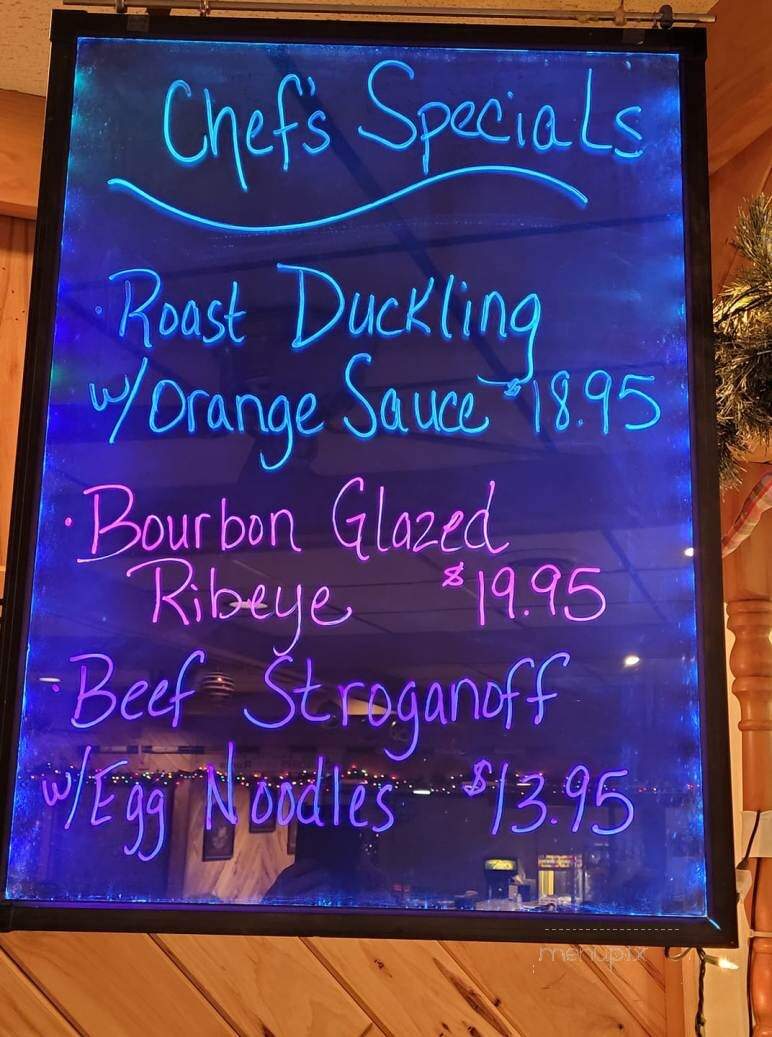 Chef's Specials
· Roast Duckling
w/Orange Sauce $18.95
· Bourbon Glazed
Ribeye $19.95
· Beef Stroganoff
w/Egg Noodles $13.95
menupix